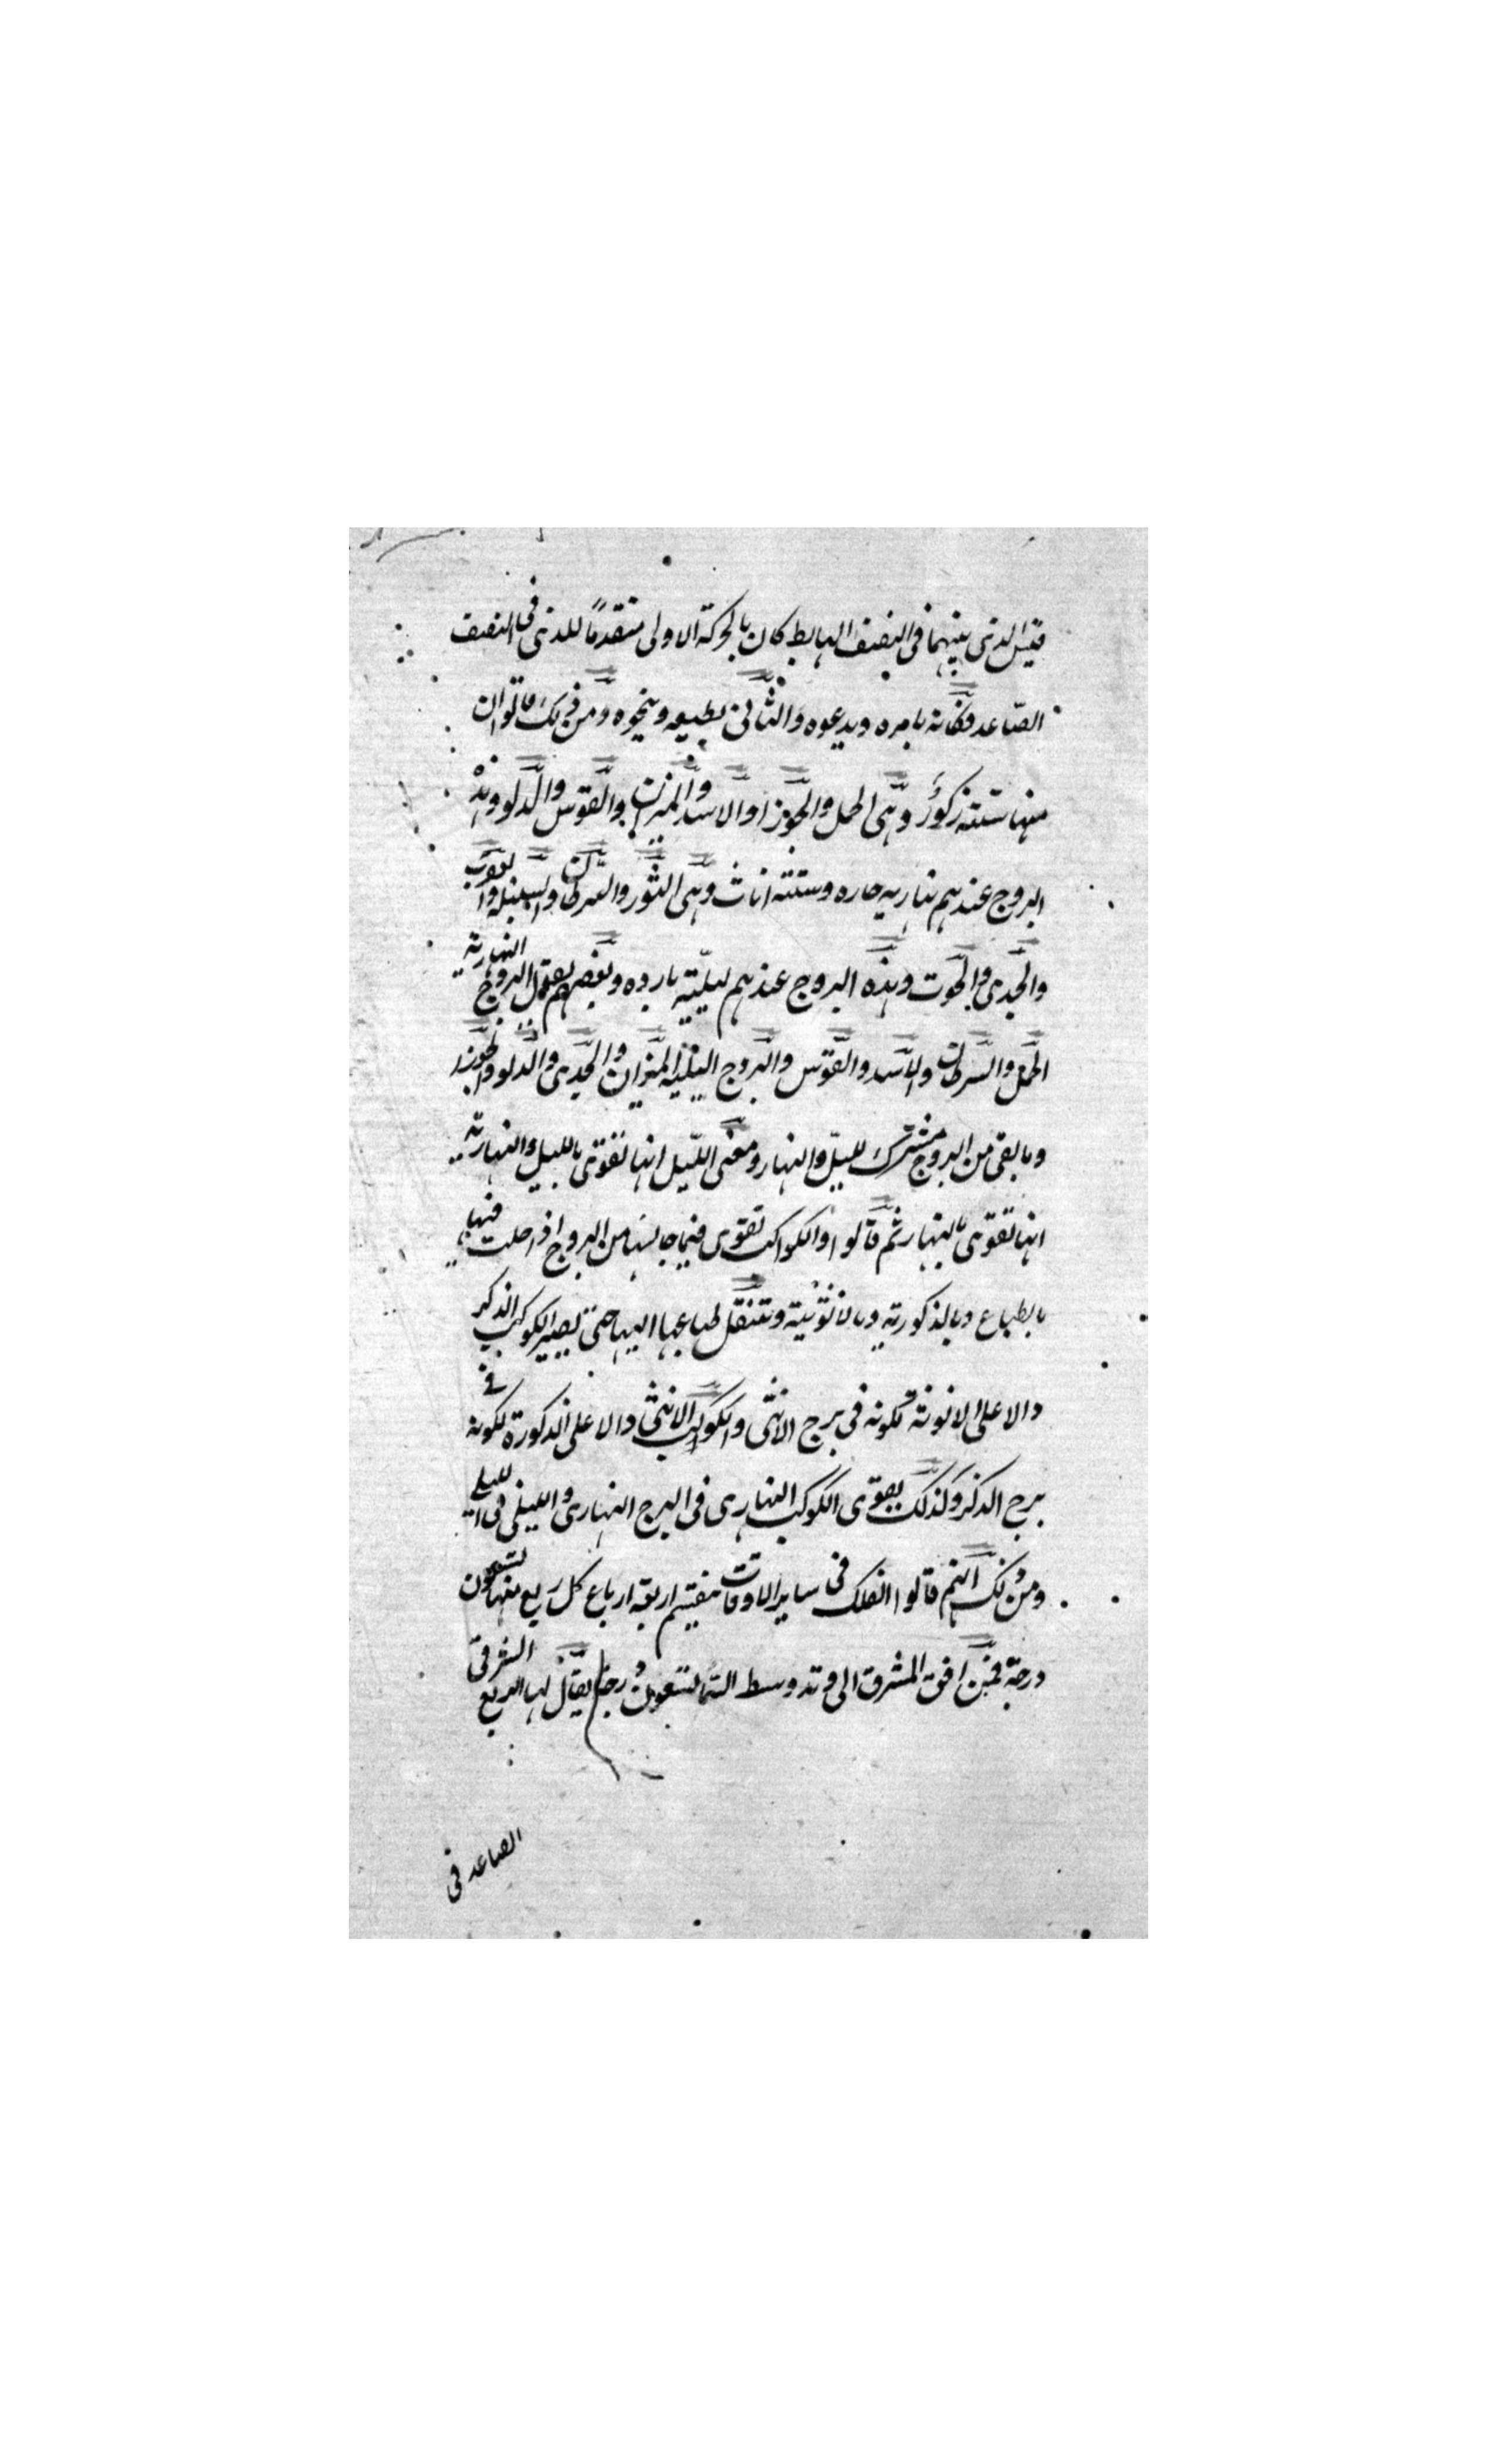 فتيس الذى بينهما فى النصف الهابط كان بالحركة الاولى متقدماً للذى فى النصف
الصّاعد فكانه يامره ويدعوه والثانى يطيعه وينحوه ومن ذلك قالوا ان
منها ستته زكورٌ وهى الحمل والجوزا والاسد والميزان والقوس والدلو وهذه
البروج عندهم نهاريه حاره وستته اناث وهى الثور والسرطان والسنبله والعقرب
والجدى والحوت وهذه البروج عندهم ليليّته بارده وبعضهم يقول البروج النهارية
الحمل والسرطان والاسد والقوس والبروج الليليه الميزان والجدى والدلو والجوزا
وما بقى من البروج مشترك لليل والنهار ومعنى الليل انها تقوى بالليل والنهارية
انها تقوى بالنهار ثم قالوا والكواكب تقوى فيما جانسها من البروج اذا حلت فيها
بالطباع وبالذكوريه وبالانوثيته وتنتقل طباعها اليها حتى يصير الكوكب الذكر
دالا على الانوثة لكونه فى برج الانثى والكوكب الانثى دالا على الذكورة لكونه فى
برج الذكر وكذلك يقوى الكوكب النهارى فى البرج النهارى والليلى فى الليلى
ومن ذلك انهم قالوا الفلك فى ساير الاوقات ينقسم اربعة ارباع كل ربع منها تسعون
درجة فمن افق المشرق الى وتد وسط السما تسعون درجة يقال لها الربع الشرقى
الصاعد فى